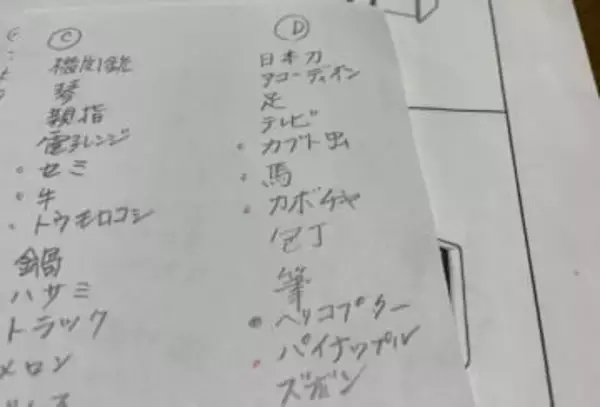 C
機関銃
琴
親指
電子レンジ
・セミ
・牛
・トウモロコシ
鍋
ハサミ
トラック
メロン
D
日本刀
アコーディオン
足
テレビ
・カブト虫
・馬
・カボチャ
包丁
筆
・ヘリコプター
・パイナップル
ズボン